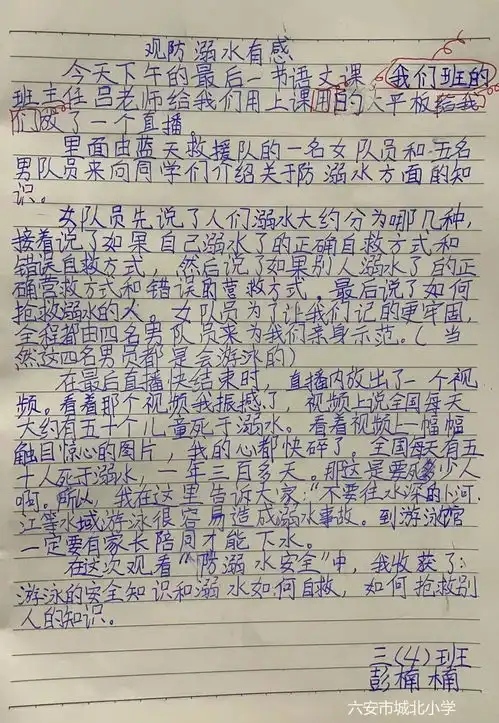 观防溺水有感
今天下午的最后一书语文课，我们班的
班主任吕老师给我们用上课用的大平板给我
们放了一个直播。
里面由蓝天救援队的一名女队员和五名
男队员来向同学们介绍关于防溺水方面的知
识。
女队员先说了人们溺水大约分为哪几种，
接着说了如果自己溺水了的正确自救方式和
错误自救方式，然后说了如果别人溺水了的正
确营救方式和错误的营救方式，最后说了如何
抢救溺水的人。女队员为了让我们记的更牢固，
全程都由四名男队员来为我们亲身示范。(当
然这四名男员都是会游泳的)
在最后直播快结束时，直播内放出了一个视
频。看着那个视频我振撼了，视频上说全国每天
大约有五十个儿童死于溺水。看着视频上一幅幅
触目惊心的图片，我的心都快碎了。全国每天有五
十人死于溺水，一年三百多天。那这是要死多少人
啊。所以，我在这里告诉大家：“不要往水深的小河、
江等水域游泳很容易造成溺水事故。到游泳馆
一定要有家长陪同才能下水。
在这次观看“防溺水安全”中，我收获了：
游泳的安全知识和溺水如何自救，如何抢救别
人的知识。
三(4)班
彭楠楠
六安市城北小学